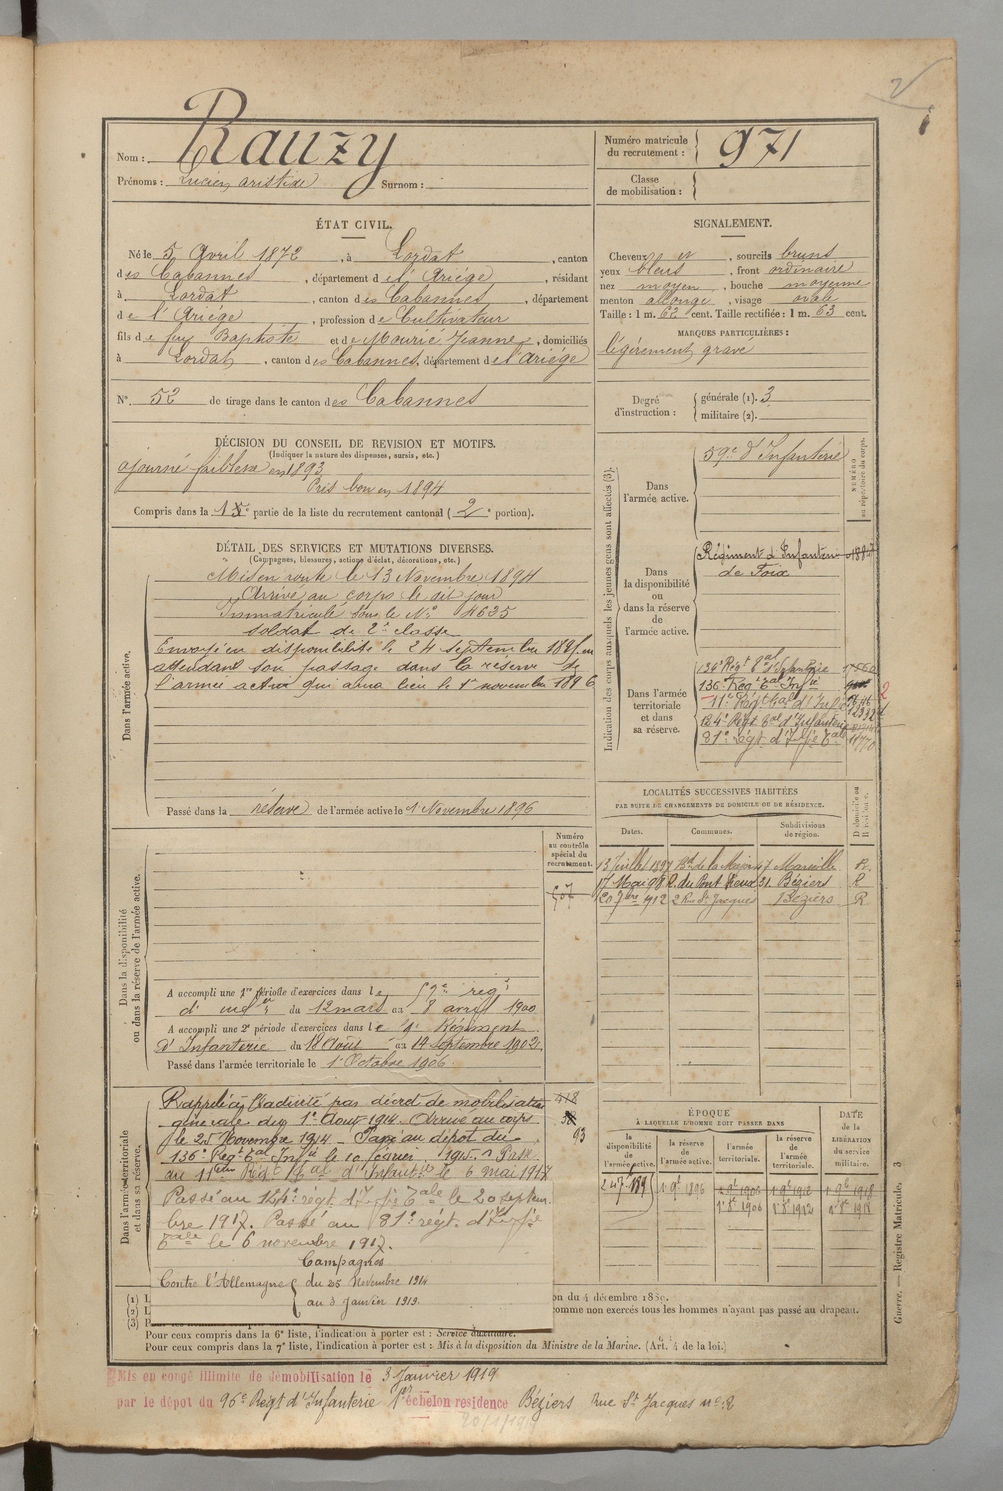 Nom : Rauzy
Prénoms : Lucien aristide Surnom :
Numéro matricule du recrutement : 971
Classe de mobilisation :
ÉTAT CIVIL.
Né le 5 Avril 1873, à Lordat, canton
des Cabannes, département de l'Ariége, résidant
à Lordat, canton des Cabannes, département
de l'Ariége, profession de Cultivateur
fils de feu Baptiste et de Mourié Jeanne, domiciliés
à Lordat, canton des Cabannes, département de l'Ariége
N° 52 de tirage dans le canton des Cabannes
SIGNALEMENT.
Cheveux et, sourcils bruns
yeux bleus, front ordinaire
nez moyen, bouche moyenne
menton allongé, visage ovale
Taille : 1 m. 62 cent. Taille rectifiée : 1 m. 63 cent.
MARQUES PARTICULIÈRES :
légèrement gravé
Degré d'instruction : générale (1). 3
militaire (2).
DÉCISION DU CONSEIL DE REVISION ET MOTIFS.
(Indiquer la nature des dispenses, sursis, etc.)
ajourné faiblesse en 1893
Pris bon en 1894
Compris dans la 1e partie de la liste du recrutement cantonal (2e portion).
DÉTAIL DES SERVICES ET MUTATIONS DIVERSES.
(Campagnes, blessures, actions d'éclat, décorations, etc.)
Dans l'armée active.
Mis en route le 13 Novembre 1894
Arrivé au corps le dit jour
Immatriculé sous le N° 4635
soldat de 2e classe
Envoyé en disponibilité le 24 septembre 1895 en
attendant son passage dans la réserve de
l'armée active qui aura lieu le 1er novembre 1896
Passé dans la réserve de l'armée active le 1 Novembre 1896
Indication des corps auxquels les jeunes gens sont affectés (3).
NUMÉRO au répertoire du corps.
Dans l'armée active.
59e d'Infanterie
Dans la disponibilité ou dans la réserve de l'armée active.
Régiment d'Infanterie
de Foix
Dans l'armée territoriale et dans sa réserve.
136e Régt Tal d'Infanterie
136e Regt Tal Infie
11e Régt Tal d'Infie
124e Régt Tal d'Infanterie
81e régt d'Infie Tale 11770
LOCALITÉS SUCCESSIVES HABITÉES
PAR SUITE DE CHANGEMENTS DE DOMICILE OU DE RÉSIDENCE.
Dates. Communes. Subdivisions de région. Domicile ou Résidence.
13 Juillet 1897 Bd de la Marseille R.
17 Mai 98 R. du Pont Vieux 31. Béziers R
20 7bre 912 2 Rue St Jacques Béziers R
Dans la disponibilité ou dans la réserve de l'armée active.
Numéro au contrôle spécial du recrutement.
507
A accompli une 1re période d'exercices dans le 59e reg.
d'infie du 12 mars au 8 avril 1900
A accompli une 2e période d'exercices dans le Régiment
d'Infanterie du 18 Août au 14 Septembre 1902
Passé dans l'armée territoriale le 1 Octobre 1906
Dans l'armée territoriale et dans sa réserve.
Rappelé à l'activité par décret de mobilisation 418
générale du 1er Août 1914. Arrivé au corps
le 25 Novembre 1914 - Passé au dépôt du 93
136e Régt Tal Infie le 10 février 1915 - Passé
au 11eme Régt Tal d'Infantie le 6 mai 1917
Passé au 124e régt d'Infie Tale le 20 septem-
bre 1917. Passé au 81e régt d'Infie
Tale le 6 novembre 1917.
Campagnes
Contre l'Allemagne du 25 Novembre 1914
au 3 Janvier 1919.
ÉPOQUE
À LAQUELLE L'HOMME DOIT PASSER DANS
la disponibilité de l'armée active.
la réserve de l'armée active.
l'armée territoriale.
la réserve de l'armée territoriale.
DATE de la LIBÉRATION du service militaire.
1 9b 1896 1 9b 1906 1 9b 1912 1 9b 1918
1 8b 1906 1 8b 1912 1 8b 1918
(1) L
(2) L
(3) P
on du 4 décembre 1889.
comme non exercés tous les hommes n'ayant pas passé au drapeau.
Pour ceux compris dans la 6e liste, l'indication à porter est : Service auxiliaire.
Pour ceux compris dans la 7e liste, l'indication à porter est : Mis à la disposition du Ministre de la Marine. (Art. 4 de la loi.)
Guerre. — Registre Matricule. 3
Mis en congé illimité de démobilisation le 3 Janvier 1919
par le dépôt du 96e Régt d'Infanterie 1er échelon résidence Béziers Rue St Jacques n° 2